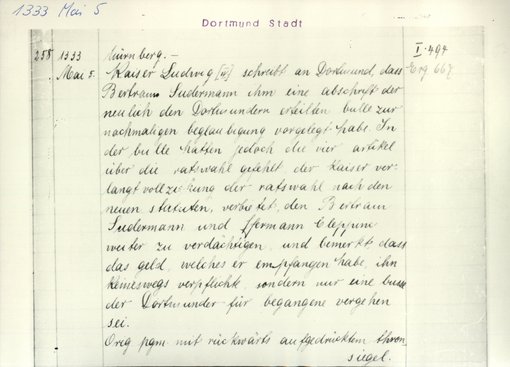 1333 Mai 5
Dortmund Stadt
258 1333 Nürnberg.- I. 494
Mai 5. Kaiser Ludwig [IV] schreibt an Dortmund, dass Erg 667
Bertram Sudermann ihm eine abschrift der
neulich den Dortmundern erteilten bulle zur
nochmaligen beglaubigung vorgelegt habe. In
der bulle hätten jedoch die vier artikel
über die ratswahl gefehlt, der Kaiser ver-
langt vollziehung der ratswahl nach den
neuen statuten, verbietet, den Bertram
Sudermann und Hermann Cleppinc
weiter zu verdächtigen, und bemerkt dass
das geld, welches er empfangen habe, ihn
keineswegs verpflichte, sondern nur eine busse
der Dortmunder für begangene vergehen
sei.
Orig pgm. mit rückwärts aufgedrücktem thron-
siegel.